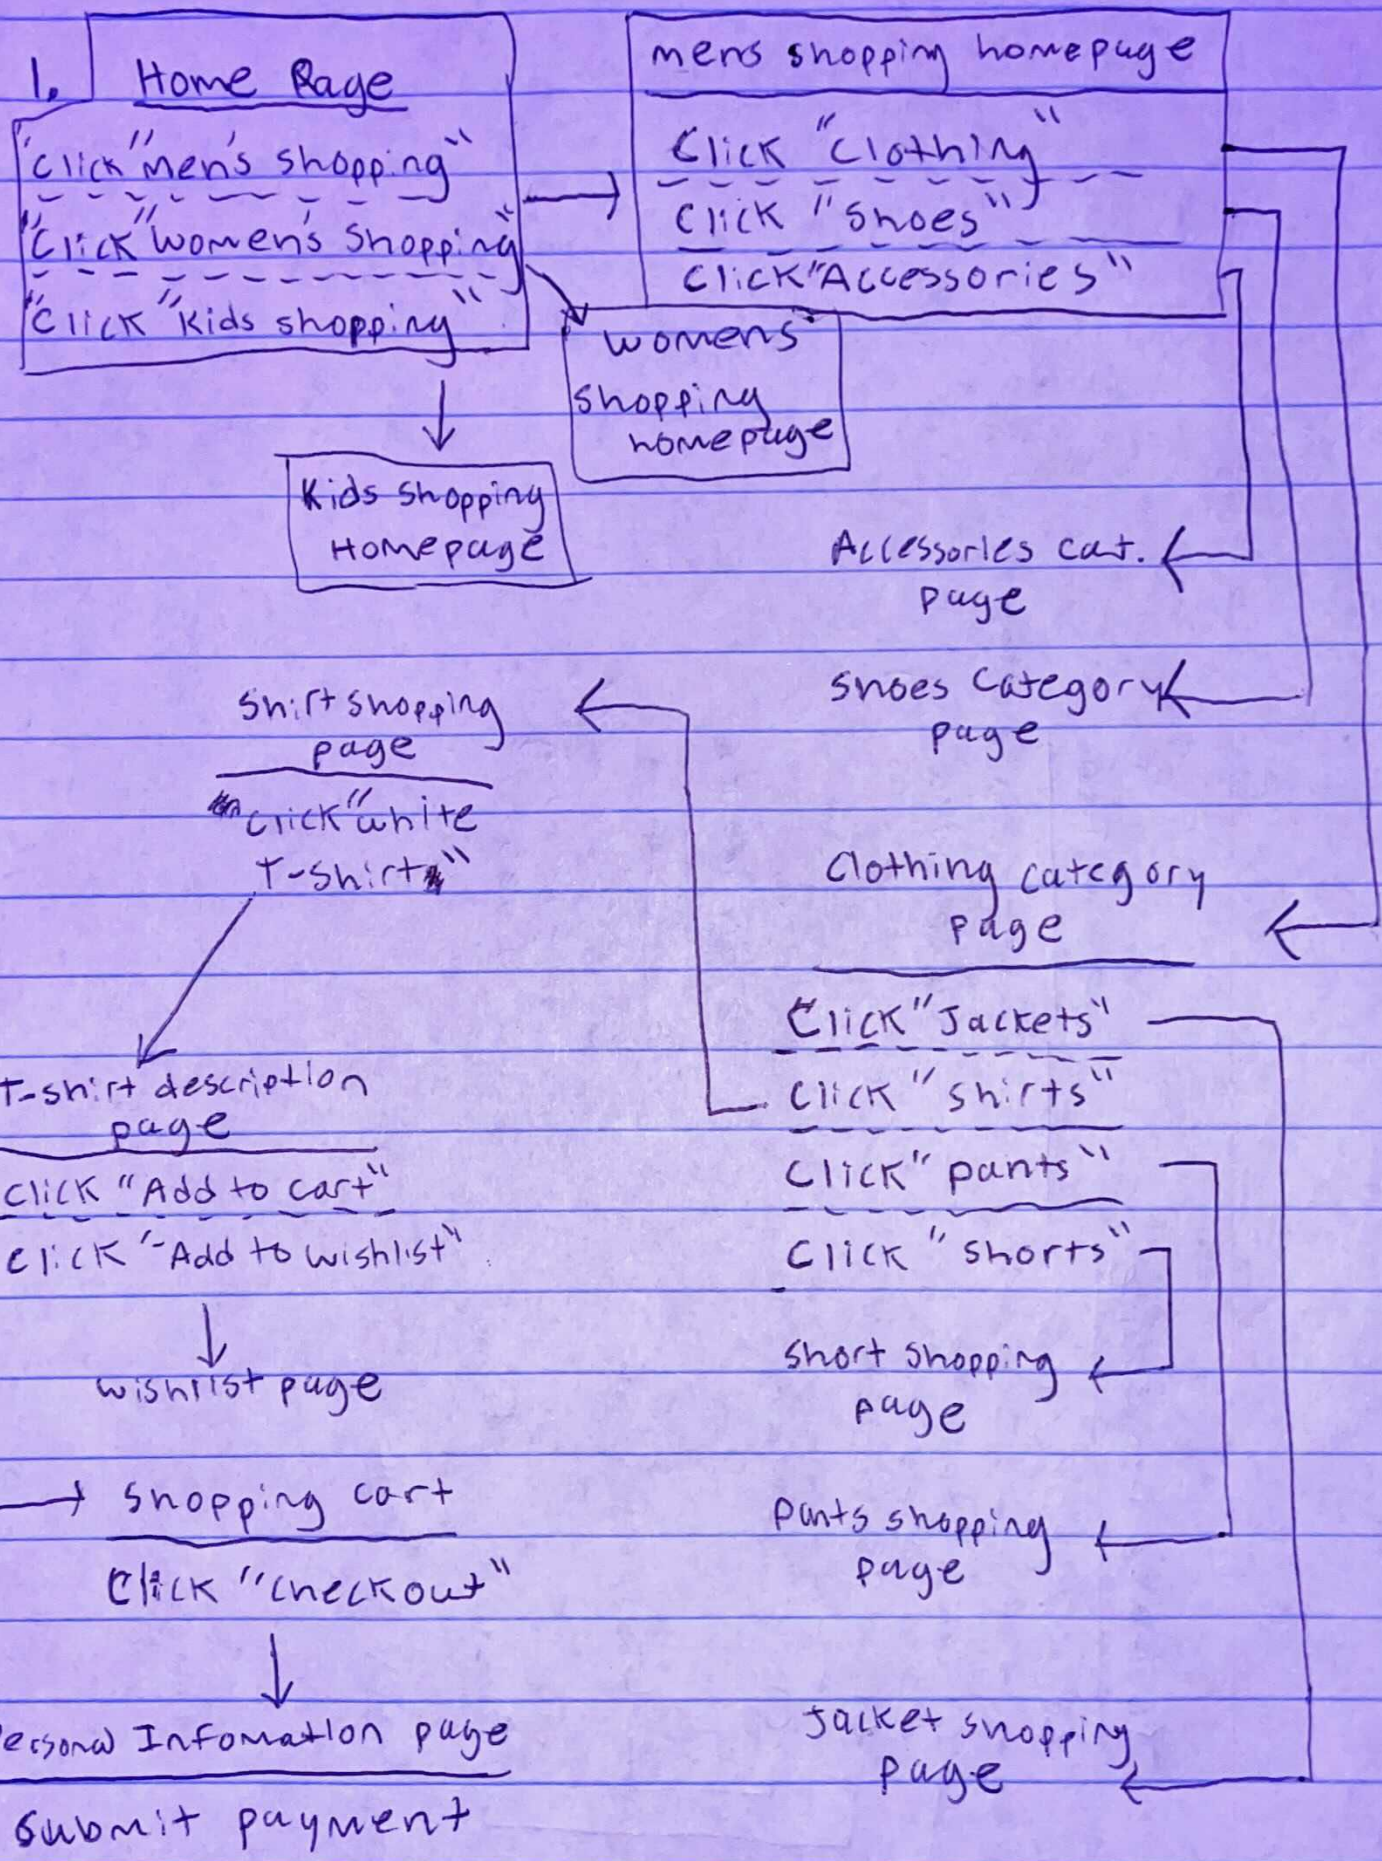 1. Home Page
"Click "Men's shopping"
"Click "Women's Shopping"
"Click "Kids shopping"
mens shopping homepage
Click "Clothing"
Click "Shoes"
Click "Accessories"
womens
shopping
homepage
Kids shopping
Homepage
Accessories cat.
page
Shoes Category
page
Shirt shopping
page
click "white
T-shirt"
Clothing category
page
Click "Jackets"
Click "shirts"
Click "pants"
Click "shorts"
T-shirt description
page
Click "Add to cart"
Click "Add to wishlist"
wishlist page
short shopping
page
Shopping cart
Click "checkout"
pants shopping
page
Personal Infomation page
Submit payment
Jacket shopping
page